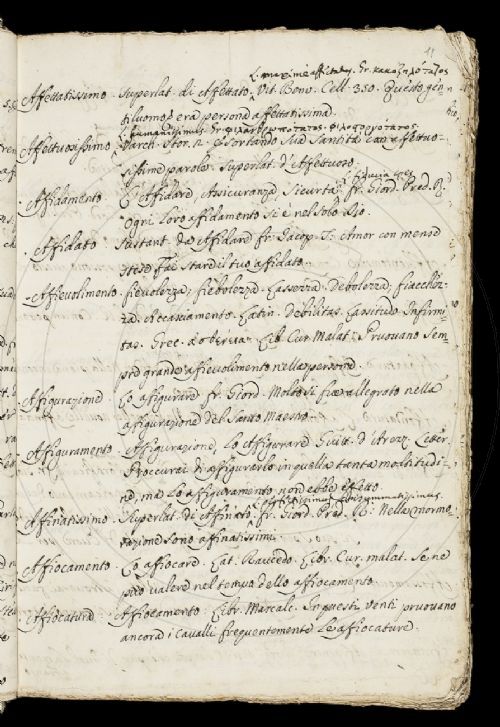 11
L. maximè affectatus. Gr. κακοζηλότατος
Affettatissimo. Superlat. di Affettato. Vit. Benv. Cell. 350. Questo gen-
tiluomo era persona affettatissima.
L. humanissimus. Gr. φιλανθρωπότατος. φιλοστοργότατος.
Affettuosissimo. Varch. Stor. Esortando Sua Santità con affettuo-
sissime parole. Superlat. d'Affettuoso.
Affidamento. L'Affidare, Assicuranza, Sicurtà. fr. Giord. Pred. R.
Ogni loro affidamento si è nel solo Dio.
Affidato. Sustant. da Affidare. fr. Jacop. T. Amor con meno
stare il tuo affidato.
Affievolimento. fievolezza, fiebolezza, Lassezza, Debolezza, fiacchez-
za, Accasciamento. Latin. debilitas. Lassitudo. Infirmi-
tas. Grec. ἀσθένεια. Lib. Cur. Malat. Pruovano sem-
pre grande affievolimento nella persona.
Affigurazione. Lo affigurare. fr. Giord. Molto si fu allegrato nella
affigurazione del Santo Maestro.
Affiguramento. Affigurazione, Lo Affigurare. Guitt. d'Arezz. Leter.
Proccurai di affigurarlo in quella tanta moltitudi-
ne, ma lo affiguramento non ebbe effetto.
Affinatissimo. Superlat. di Affinato. fr. Giord. Pred. R. Nella mormo-
razione sono affinatissimi.
Affiocamento. Lo affiocare. Lat. Raucedo. Libr. Cur. malat. Se ne
può valere nel tempo dello affiocamento.
Affiocatura. Affiocamento. Libr. Mascalc. In questi venti pruovano
ancora i Cavalli frequentemente le affiocature.